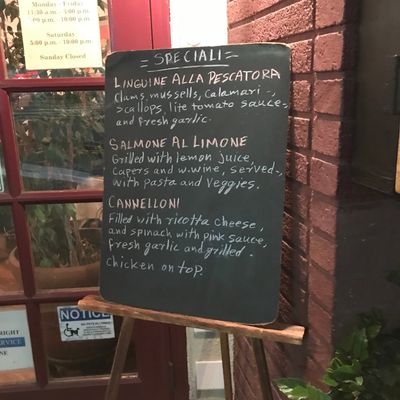 Monday - Friday
11:30 a.m.
5:00 p.m.
Saturday
5:00 p.m. 10:00 p.m.
Sunday Closed
= SPECIALI =
LINGUINE ALLA PESCATORA
Clams, mussells, Calamari -,
scallops, lite tomato sauce -
and fresh garlic.
SALMONE AL LIMONE
Grilled with lemon juice,
Capers and w. wine, served -,
with pasta and Veggies.
CANNELLONI
Filled with ricotta cheese,
and spinach with pink sauce,
fresh garlic and grilled.
chicken on top.
NOTICE